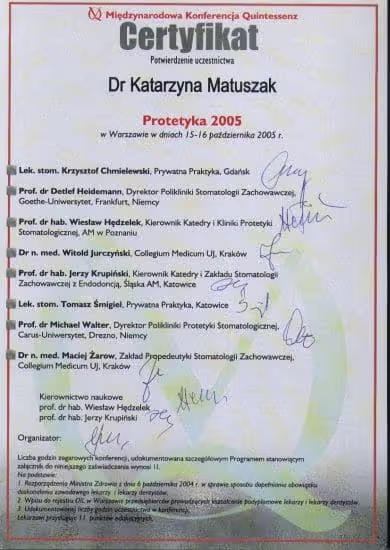 Międzynarodowa Konferencja Quintessenz
Certyfikat
Potwierdzenie uczestnictwa
Dr Katarzyna Matuszak
Protetyka 2005
w Warszawie w dniach 15-16 października 2005 r.
Lek. stom. Krzysztof Chmielewski, Prywatna Praktyka, Gdańsk
Prof. dr Detlef Heidemann, Dyrektor Polikliniki Stomatologii Zachowawczej,
Goethe-Uniwersytet, Frankfurt, Niemcy
Prof. dr hab. Wiesław Hędzelek, Kierownik Katedry i Kliniki Protetyki
Stomatologicznej, AM w Poznaniu
Dr n. med. Witold Jurczyński, Collegium Medicum UJ, Kraków
Prof. dr hab. Jerzy Krupiński, Kierownik Katedry i Zakładu Stomatologii
Zachowawczej z Endodoncją, Śląska AM, Katowice
Lek. stom. Tomasz Śmigiel, Prywatna Praktyka, Katowice
Prof. dr Michael Walter, Dyrektor Polikliniki Protetyki Stomatologicznej,
Carus-Uniwersytet, Drezno, Niemcy
Dr n. med. Maciej Żarow, Zakład Propedeutyki Stomatologii Zachowawczej,
Collegium Medicum UJ, Kraków
Kierownictwo naukowe
prof. dr hab. Wiesław Hędzelek
prof. dr hab. Jerzy Krupiński
Organizator:
Liczba godzin zegarowych konferencji, udokumentowana szczegółowym Programem stanowiącym
załącznik do niniejszego zaświadczenia wynosi 11.
Na podstawie:
1. Rozporządzenia Ministra Zdrowia z dnia 6 października 2004 r. w sprawie sposobu dopełniania obowiązku
doskonalenia zawodowego lekarzy i lekarzy dentystów.
2. Wpisu do rejestru OIL w Warszawie przedsiębiorców prowadzących kształcenie podyplomowe lekarzy i lekarzy dentystów.
3. Udokumentowanej liczby godzin uczestnictwa w konferencji,
Lekarzowi przysługuje 11 punktów edukacyjnych.